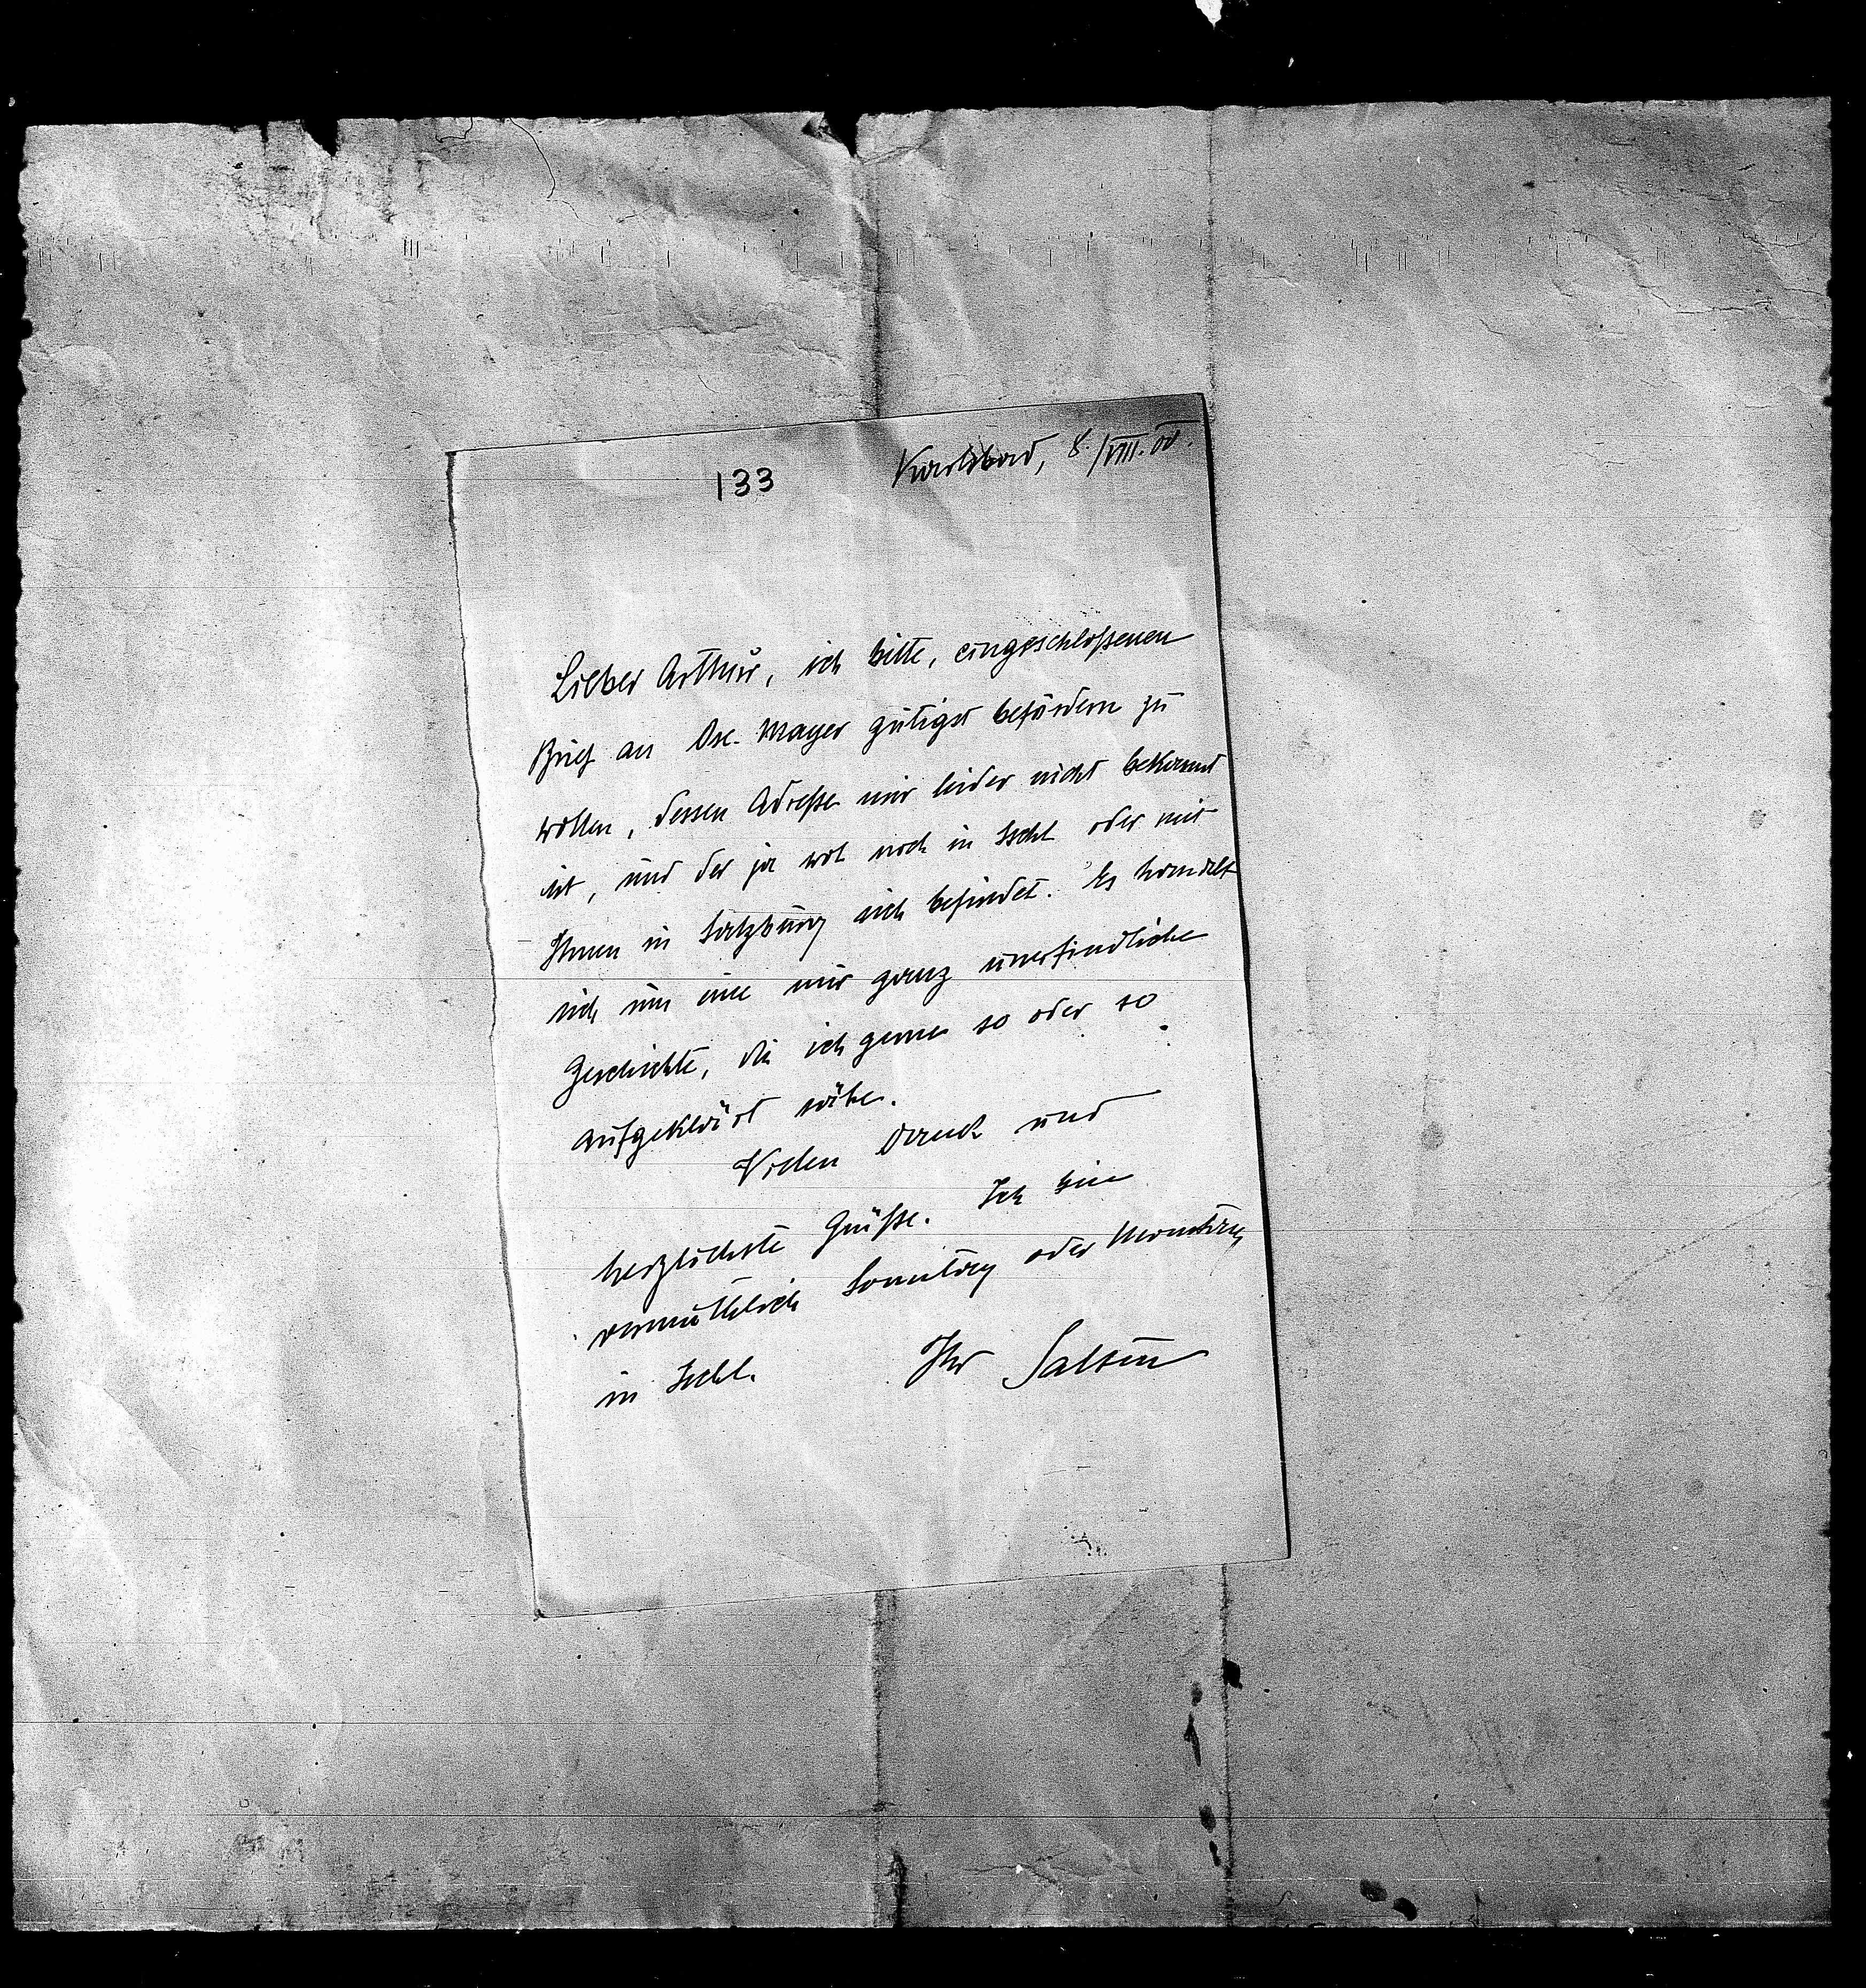 133 Karlsbad, 8./VIII. 00.
Lieber Arthur, ich bitte, eingeschloßenen
Brief an Osc. Mayer gütigst befördern zu
wollen, dessen Adreße mir leider nicht bekannt
ist, und der ja wol noch in Ischl oder mit
Ihnen in Salzburg sich befindet. Es handelt
sich um eine mir ganz unerfindliche
Geschichte, die ich gerne so oder so
aufgeklärt sähe.
Vielen Dank und
herzlichste Grüße. Ich bin
vermuthlich Sonntag oder Montag
in Ischl. Ihr Salten